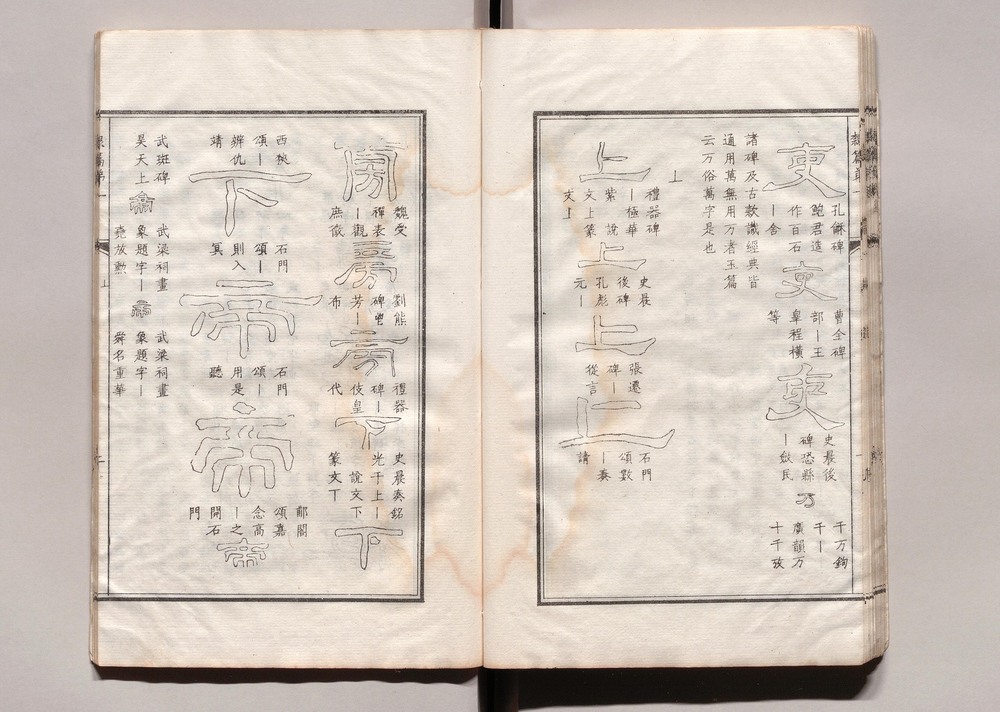 吏
孔龢碑
鮑君造
作百石
｜舍
吏
曹全碑
部｜王
皐程橫
等
吏
史晨後
碑恐縣
｜ 民
万
千万鉤
千｜
廣韻万
十千攷
諸碑及古欵識經典皆
通用萬無用万者玉篇
云万俗萬字是也
上
上
禮器碑
｜極華
紫 說
文上篆
文丄
上
史晨
後碑
孔彪
元｜
上
張遷
碑｜
從言
上
石門
頌數
｜奏
請
旁
魏受
禪表
｜觀
庶徵
旁
劉熊
碑
芳｜
布
旁
禮器
碑｜
伎皇
代
下
史晨奏銘
光于上｜
說文下
篆文丅
下
西狹
頌｜
辨仇
靖
下
石門
頌｜
則入
冥
帝
石門
頌｜
用是
聽
帝
郙閣
頌嘉
念高
｜之
開石
門
帝
武斑碑
昊天上
帝
武梁祠畫
象題字｜
堯放勳
帝
武梁祠畫
象題字｜
舜名重華